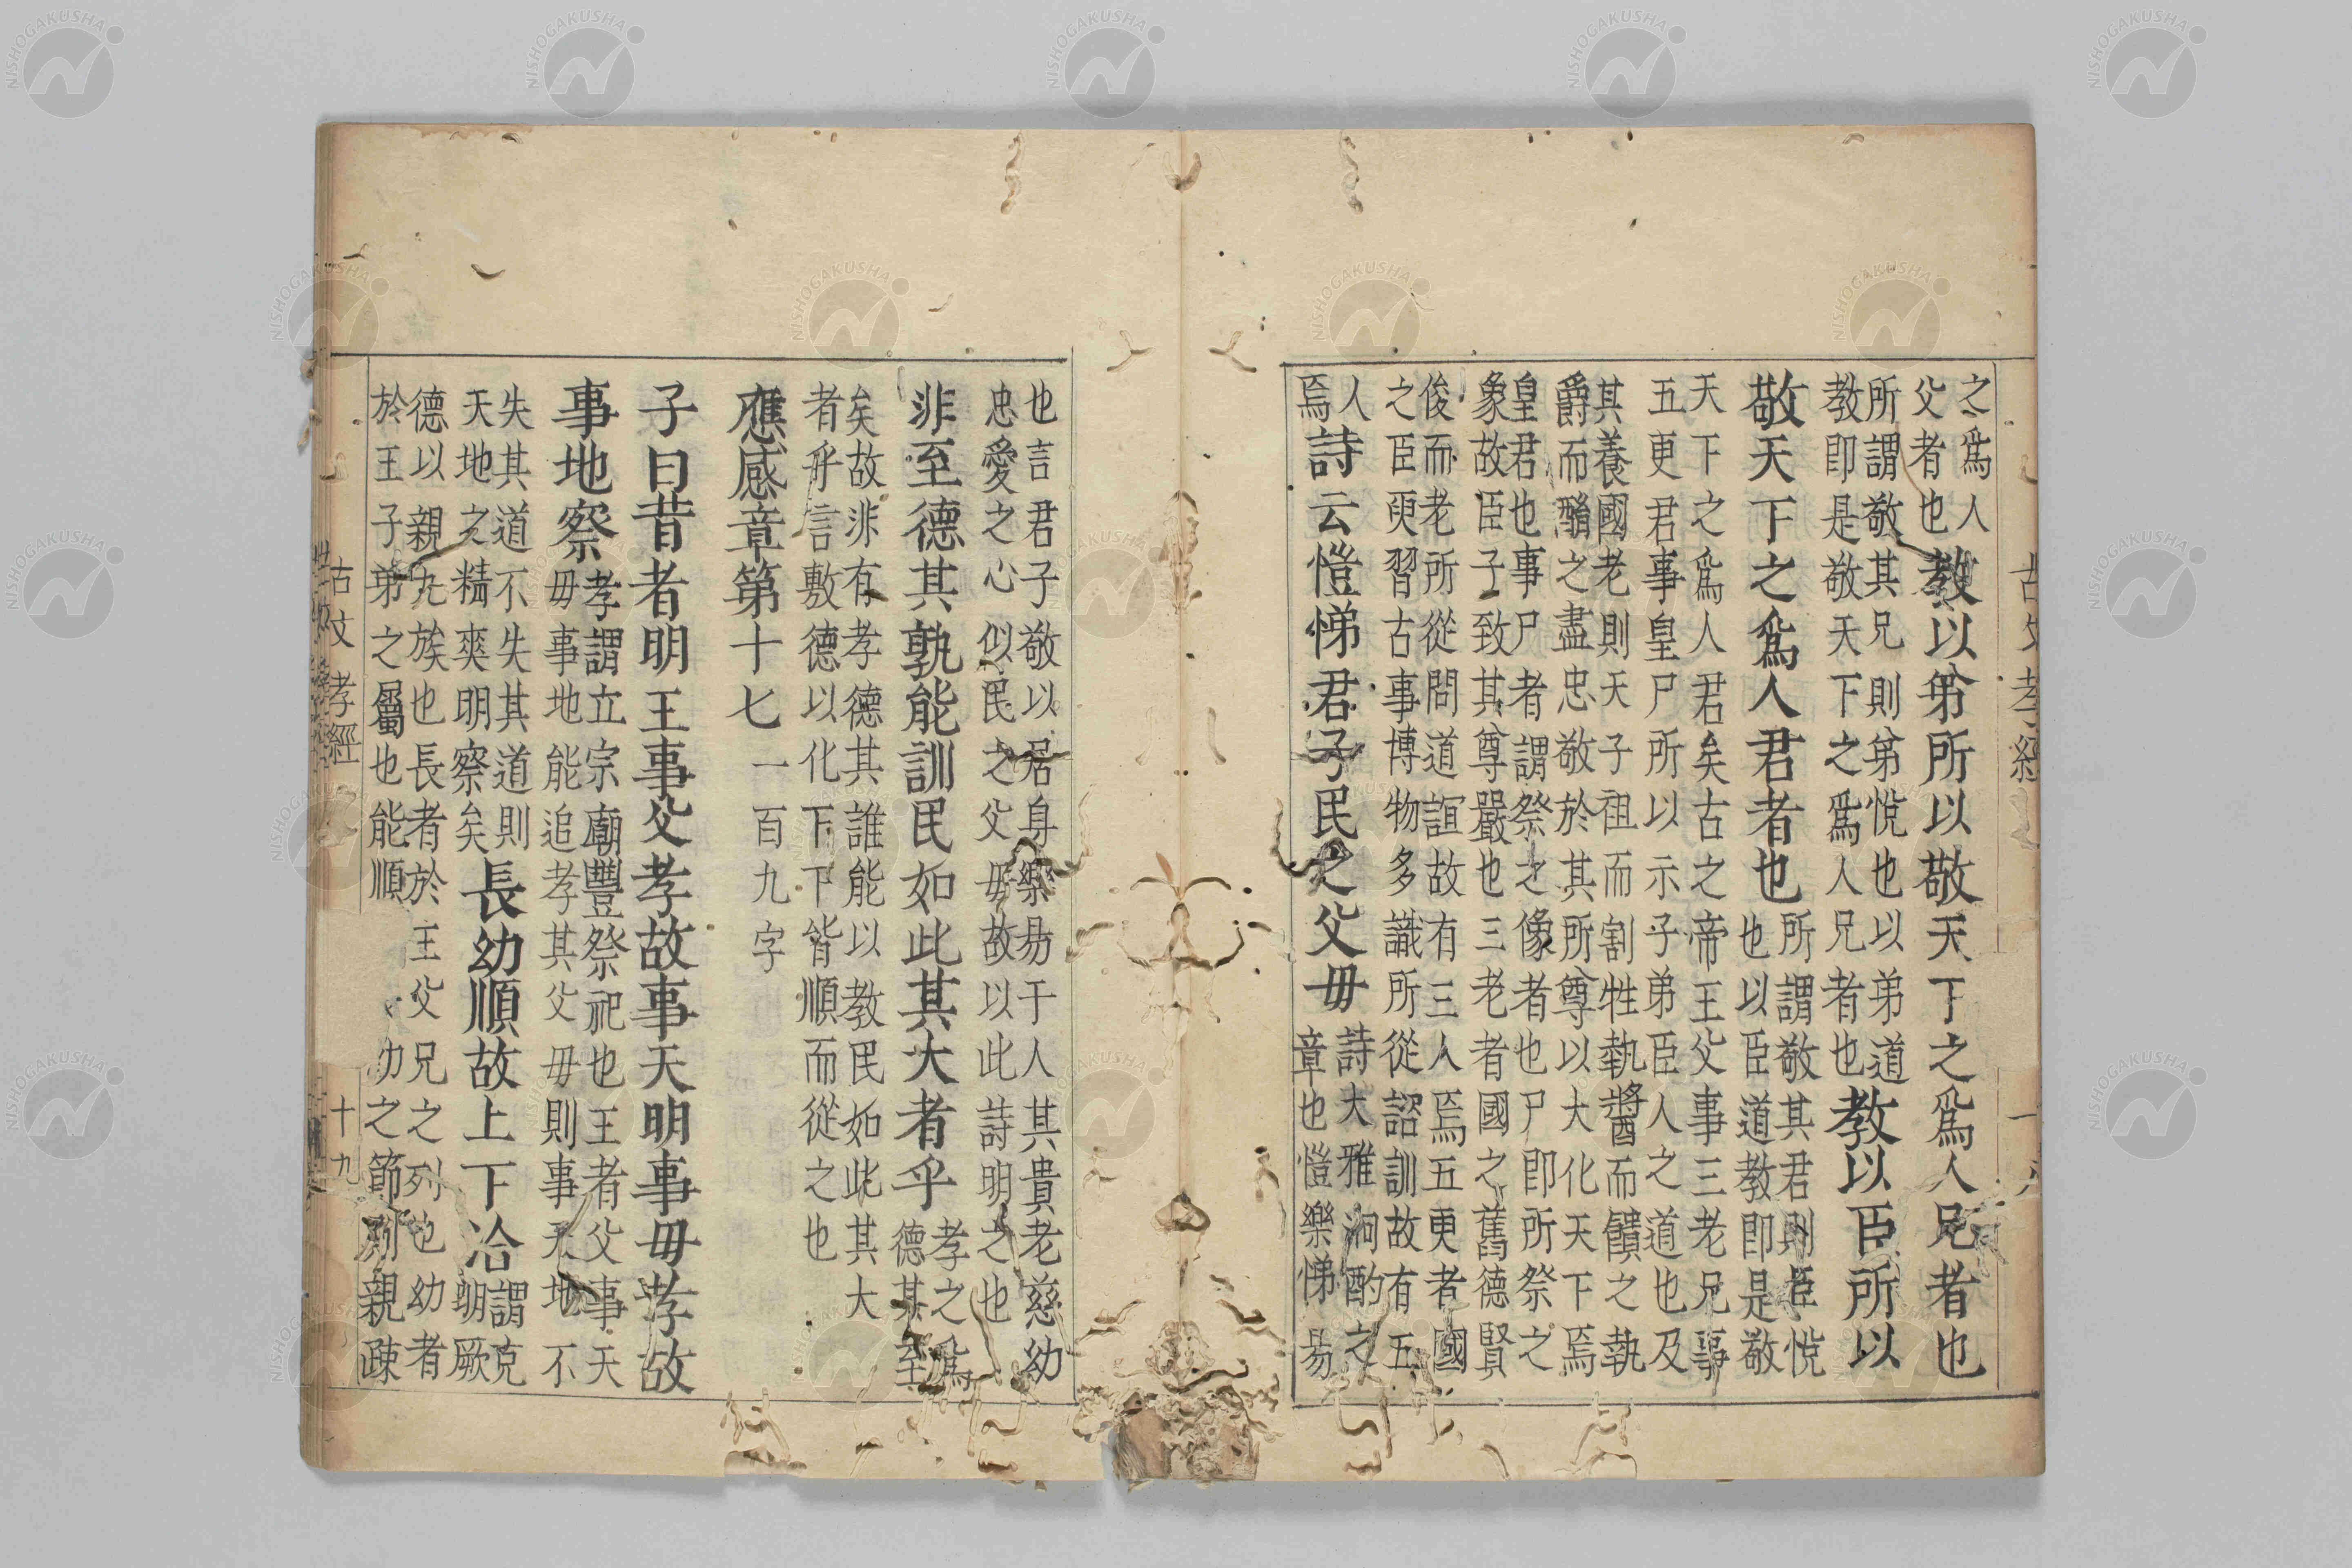 古文孝經
之爲人
父者也
教以弟所以敬天下之爲人兄者也
所謂敬其兄則弟悅也以弟道
教即是敬天下之爲人兄者也
教以臣所以
敬天下之爲人君者也
所謂敬其君則臣悅
也以臣道教即是敬
天下之爲人君矣古之帝王父事三老兄事
五更君事皇尸所以示子弟臣人之道也及
其養國老則天子祖而割牲執醬而饋之執
爵而酳之盡忠敬於其所尊以大化天下焉
皇君也事尸者謂祭之像者也尸即所祭之
象故臣子致其尊嚴也三老者國之舊德賢
俊而老所從問道誼故有三人焉五更者國
之臣更習古事博物多識所從諮訓故有五
人
焉
詩云愷悌君子民之父毋
詩大雅泂酌之
章也愷樂悌易
也言君子敬以居身樂易于人其貴老慈幼
忠愛之心似民之父毋故以此詩明之也
非至德其孰能訓民如此其大者乎
孝之爲
德其至
矣故非有孝德其誰能以教民如此其大
者乎言敷德以化下下皆順而從之也
應感章第十七 一百九字
子曰昔者明王事父孝故事天明事毋孝故
事地察
孝謂立宗廟豐祭祀也王者父事天
毋事地能追孝其父毋則事天地不
失其道不失其道則
天地之精爽明察矣
長幼順故上下治
謂克
明厥
德以親九族也長者於王父兄之列也幼者
於王子弟之屬也能順幼之節則親疎
古文孝經 十九